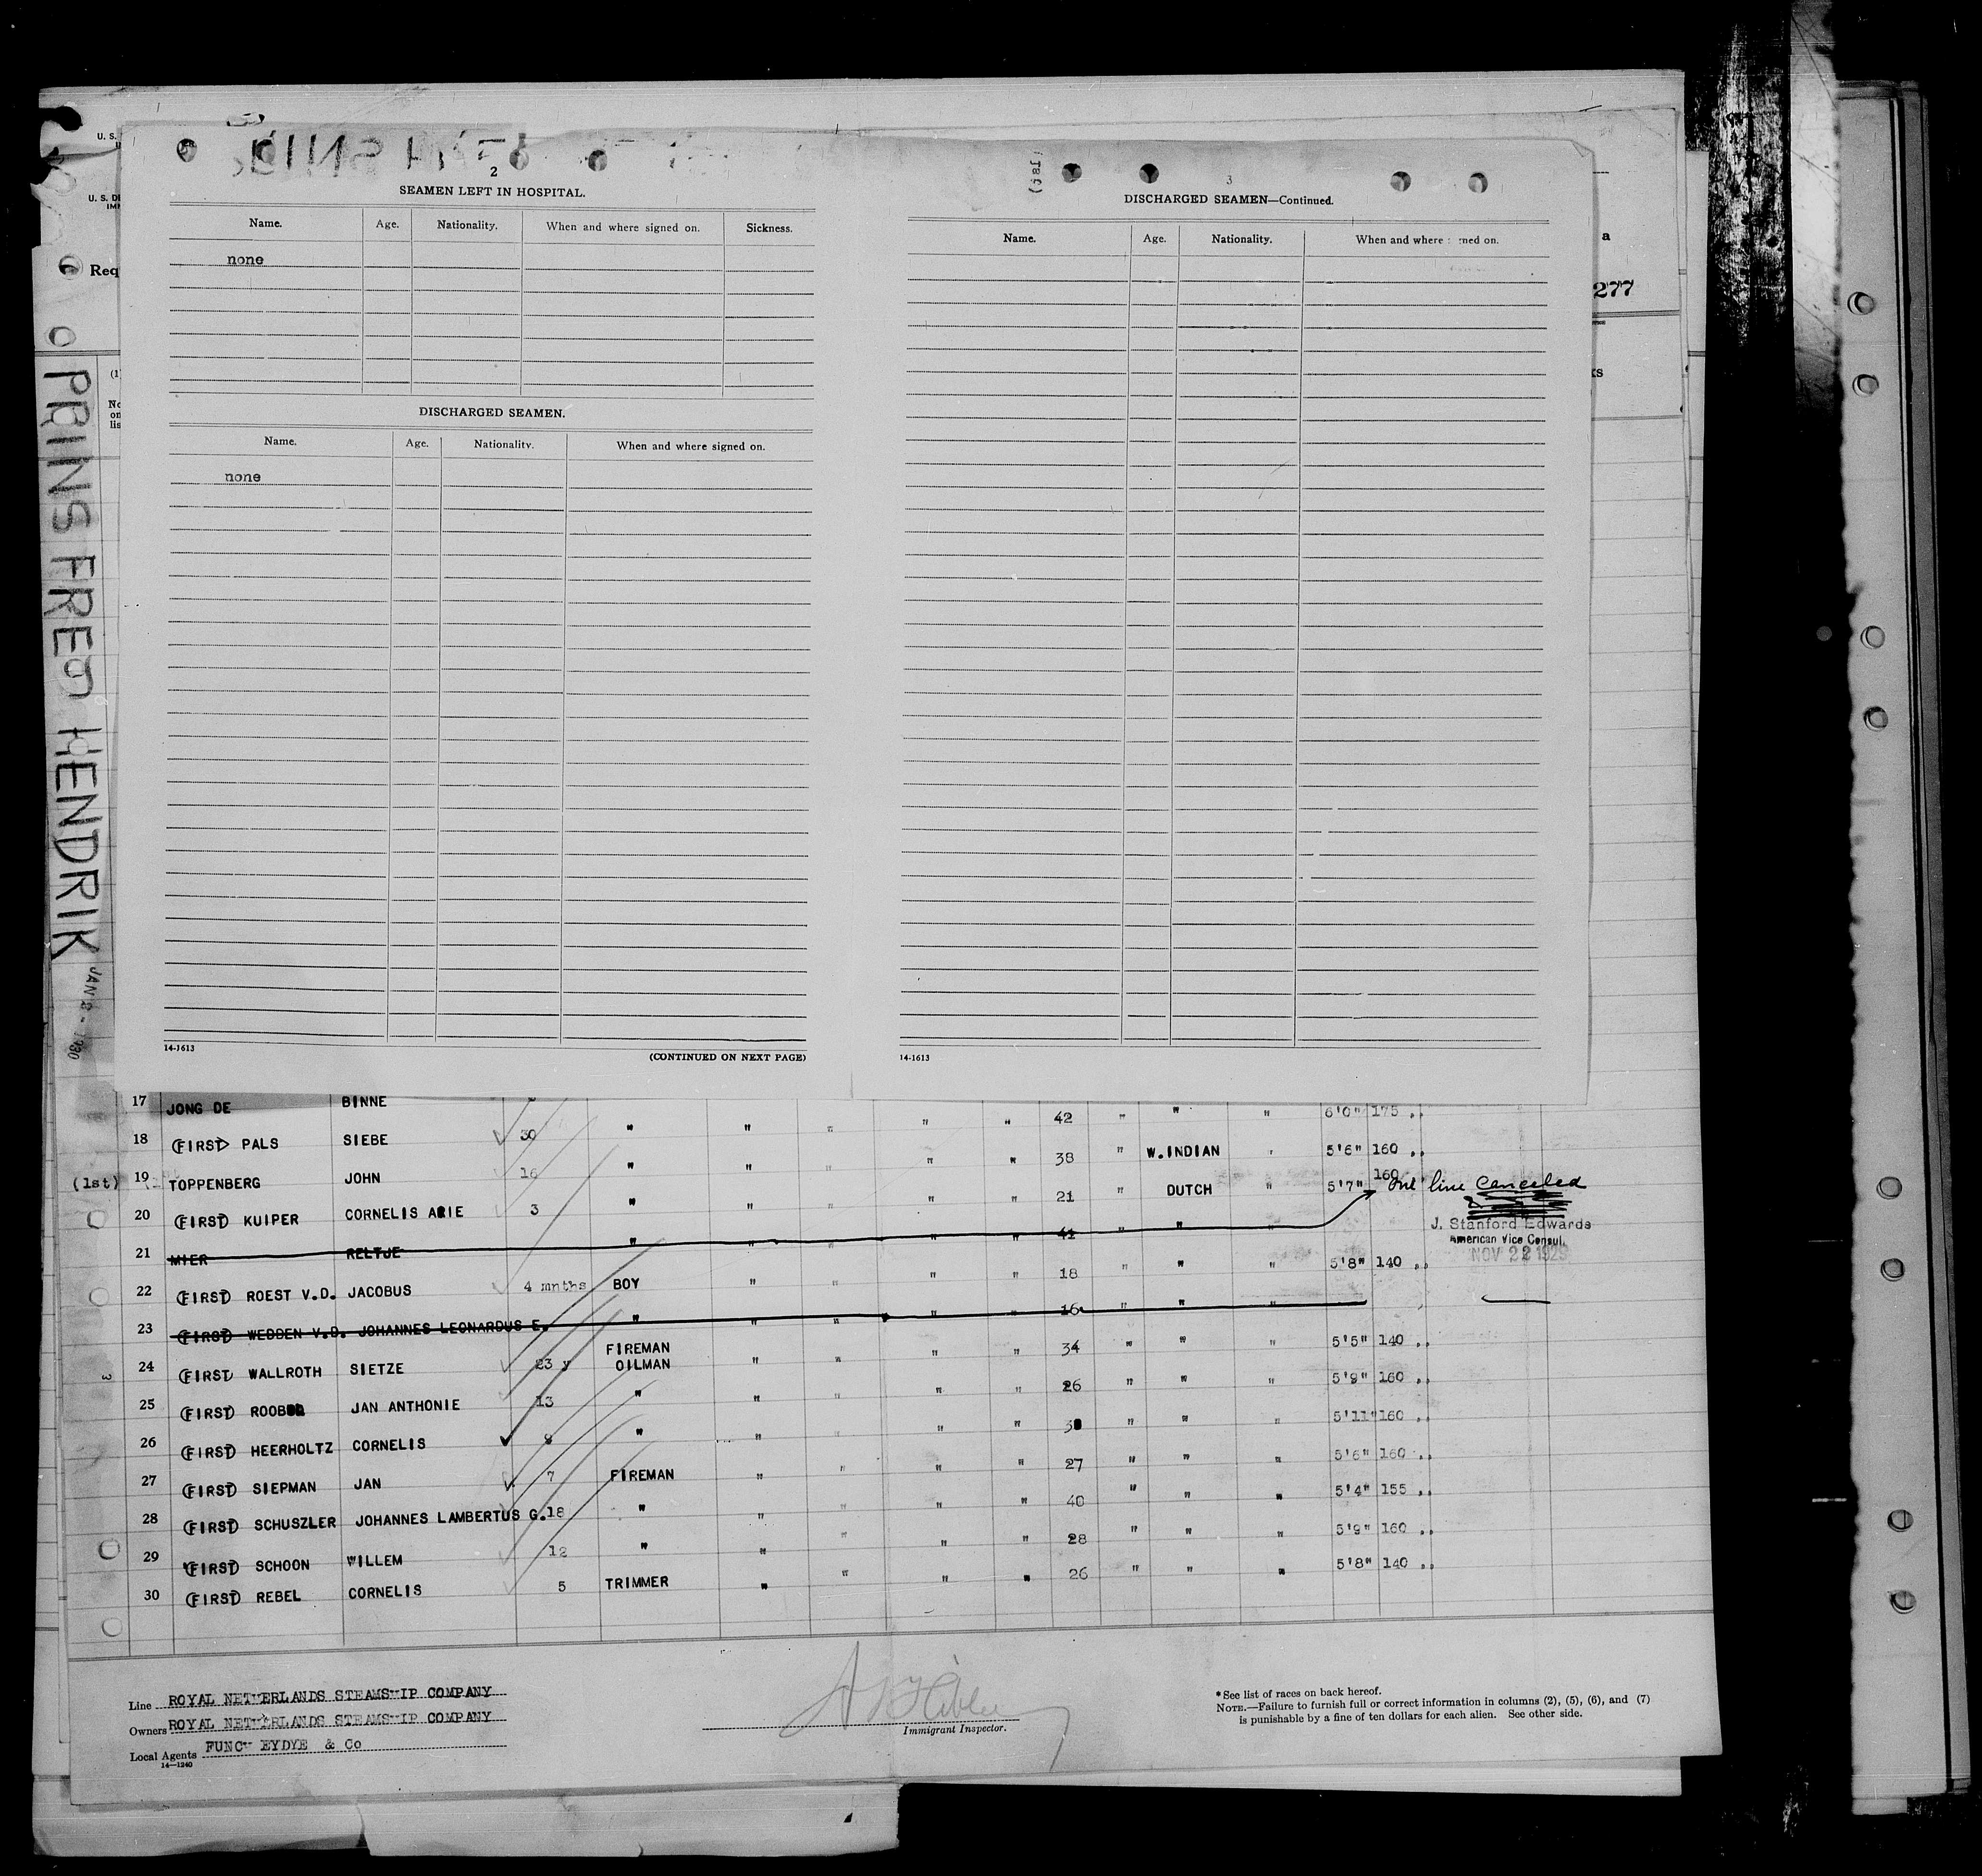 U. S.
U. S. D
IM
Req
(1)
No
on
lis
a
277
ks
PRINS FRED HENDRIK
JAN 2 - 1930
2
SEAMEN LEFT IN HOSPITAL.
Name. Age. Nationality. When and where signed on. Sickness.
none
DISCHARGED SEAMEN.
Name. Age. Nationality. When and where signed on.
none
14-1613
(CONTINUED ON NEXT PAGE)
3
DISCHARGED SEAMEN—Continued.
Name. Age. Nationality. When and where signed on.
14-1613
17 JONG DE BINNE 42 " " " 6'0" 175 "
18 (FIRST) PALS SIEBE 30 " " " " " 38 " W.INDIAN " 5'6" 160 "
(1st) 19 TOPPENBERG JOHN 16 " " " " " 21 " DUTCH " 5'7" 160
20 (FIRST) KUIPER CORNELIS ARIE 3 " " " " " 41 " " "
One line Canceled
J. Stanford Edwards
American Vice Consul.
NOV 22 1929
21 MIER RELTJE " " " " "
22 (FIRST) ROEST V.D. JACOBUS 4 mnths BOY " " " " 18 " " " 5'8" 140 "
23 (FIRST) WEDDEN V.D. JOHANNES LEONARDUS E. " " " " " 16 " " "
24 (FIRST) WALLROTH SIETZE 23 y FIREMAN OILMAN " " " " 34 " " 5'5" 140 "
25 (FIRST) ROOB JAN ANTHONIE 13 " " " " " 26 " " " 5'9" 160 "
26 (FIRST) HEERHOLTZ CORNELIS 8 " " " " " " " " 5'11" 160 "
27 (FIRST) SIEPMAN JAN 7 FIREMAN " " " " 27 " " " 5'6" 160 "
28 (FIRST) SCHUSZLER JOHANNES LAMBERTUS G. 18 " " " " " 40 " " " 5'4" 155 "
29 (FIRST) SCHOON WILLEM 12 " " " " " 28 " " " 5'9" 160 "
30 (FIRST) REBEL CORNELIS 5 TRIMMER " " " " 26 " " " 5'8" 140 "
3
Line ROYAL NETHERLANDS STEAMSHIP COMPANY
Owners ROYAL NETHERLANDS STEAMSHIP COMPANY
Local Agents FUNCH EYDYE & Co
14—1240
Immigrant Inspector.
* See list of races on back hereof.
NOTE.—Failure to furnish full or correct information in columns (2), (5), (6), and (7)
is punishable by a fine of ten dollars for each alien. See other side.